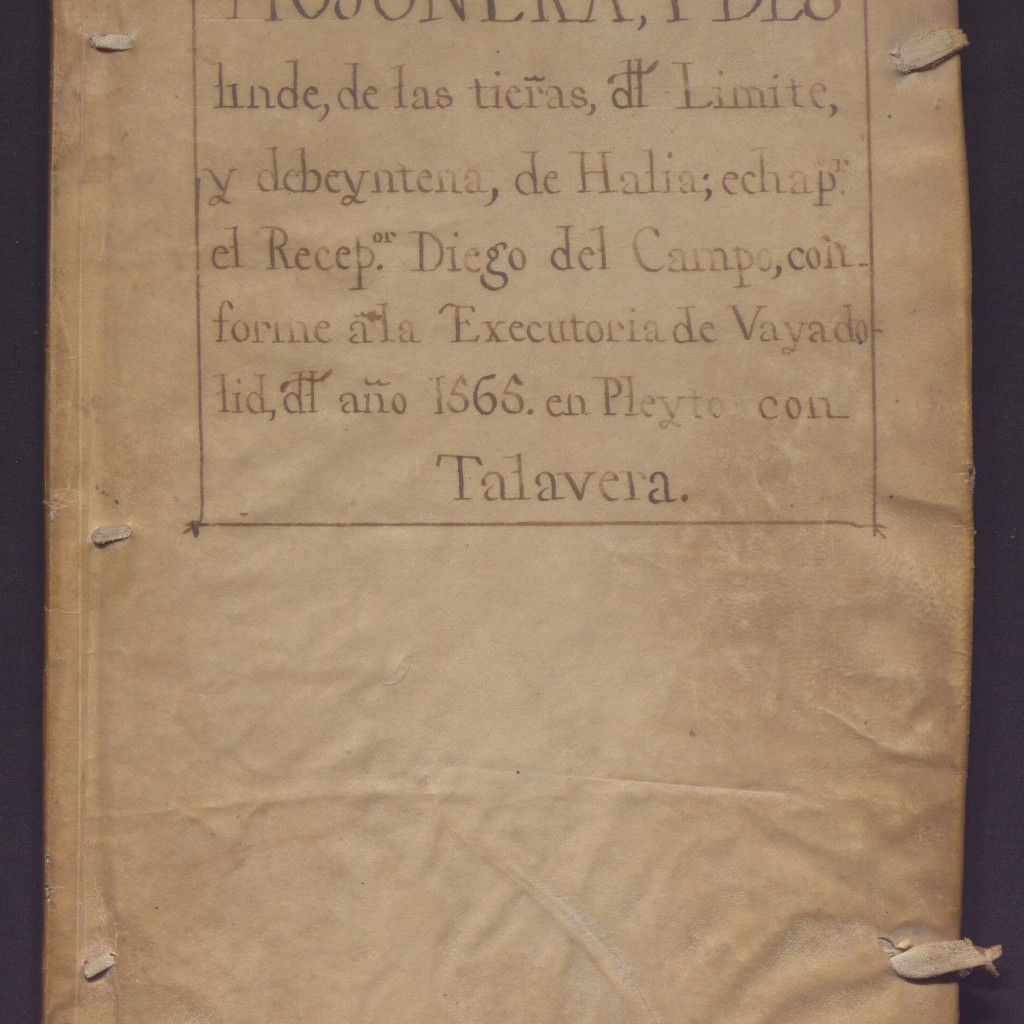 MOJONERA, Y DES
linde, de las tierr̃as, dl̃ Limite,
y debeyntena, de Halia; echa p.r
el Recep.or Diego del Campo, con-
forme â la Executoria de Vayado-
lid, dl̃ año 1565. en Pleyto con
Talavera.